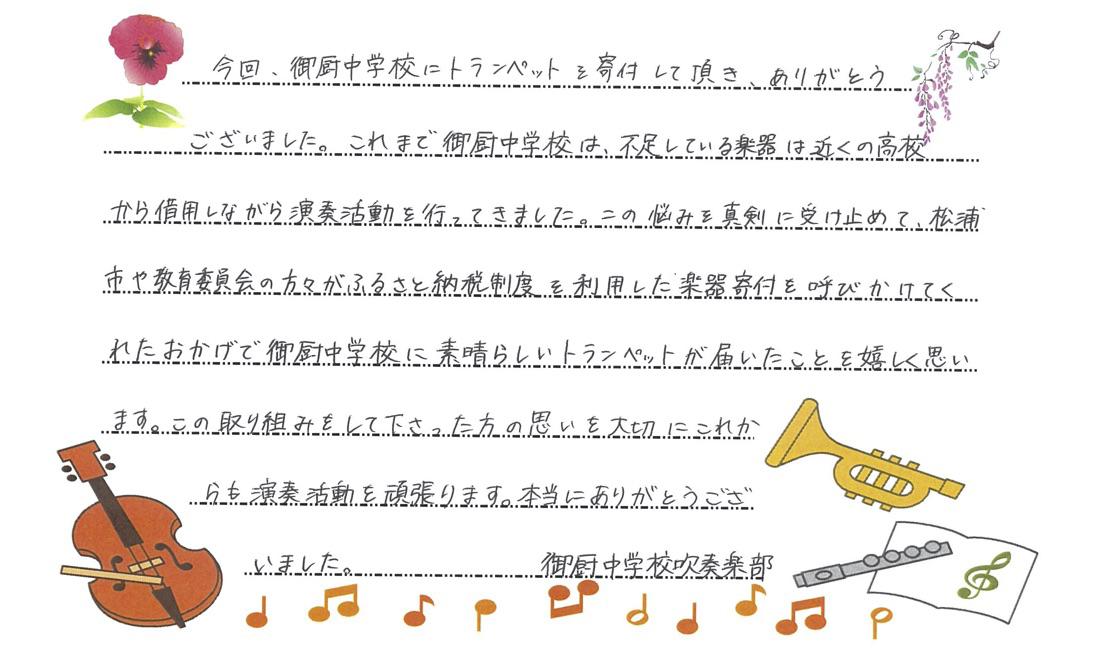 今回、御厨中学校にトランペットを寄付して頂き、ありがとう
ございました。これまで御厨中学校は、不足している楽器は近くの高校
から借用しながら演奏活動を行ってきました。この悩みを真剣に受け止めて、松浦
市や教育委員会の方々がふるさと納税制度を利用した楽器寄付を呼びかけてく
れたおかげで御厨中学校に素晴らしいトランペットが届いたことを嬉しく思い
ます。この取り組みをして下さった方の思いを大切にこれか
らも演奏活動を頑張ります。本当にありがとうござ
いました。 御厨中学校吹奏楽部